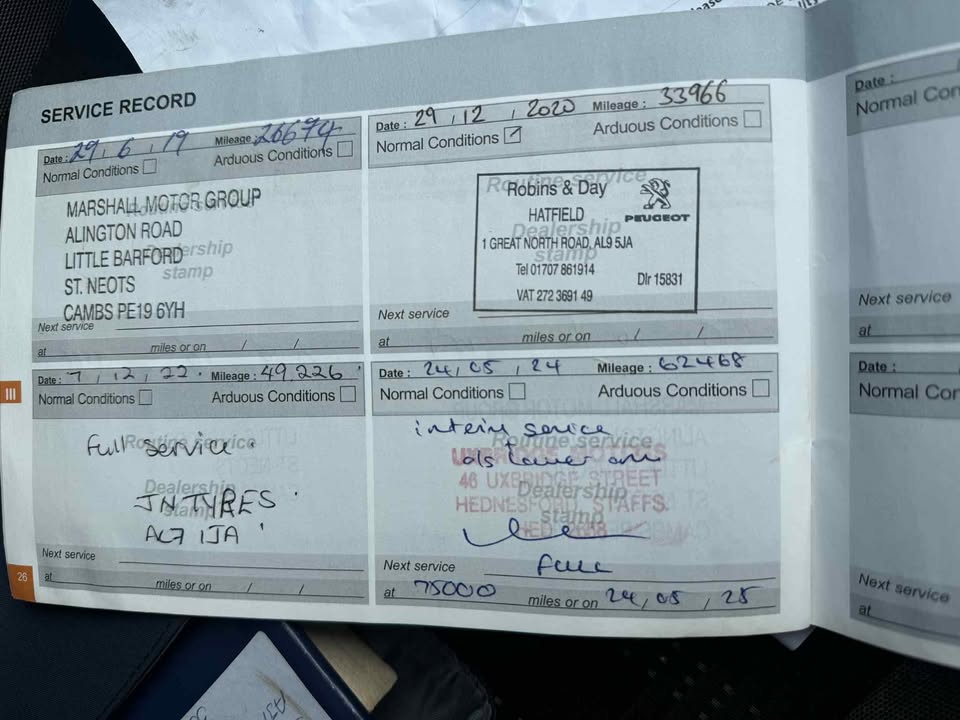 SERVICE RECORD
Date : 29 , 6 , 19 Mileage : 26674
Normal Conditions
Arduous Conditions
Routine service
Dealership
stamp
MARSHALL MOTOR GROUP
ALINGTON ROAD
LITTLE BARFORD
ST. NEOTS
CAMBS PE19 6YH
Next service
at miles or on / /
Date : 29 , 12 , 2020 Mileage : 33966
Normal Conditions
Arduous Conditions
Routine service
Dealership
stamp
Robins & Day
HATFIELD
PEUGEOT
1 GREAT NORTH ROAD, AL9 5JA
Tel 01707 861914
Dlr 15831
VAT 272 3691 49
Next service
at miles or on / /
III
Date : 7 , 12 , 22 . Mileage : 49,226
Normal Conditions
Arduous Conditions
Routine service
Dealership
stamp
Full service
JN TYRES
AL7 1JA
Next service
at miles or on / /
26
Date : 24 , 05 , 24 Mileage : 62468
Normal Conditions
Arduous Conditions
interim service
Routine service
o/s lower arm
UXBRIDGE MOTORS
46 UXBRIDGE STREET
Dealership
HEDNESFORD STAFFS.
stamp
Next service Full
at 75000 miles or on 24 , 05 , 25
Date :
Normal Con
Next service
at
Date :
Normal Con
Next service
at